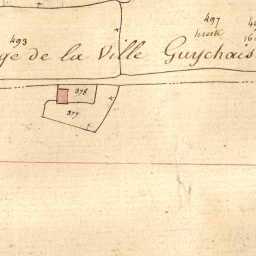 493
497
ge de la Ville Guychais
378
377